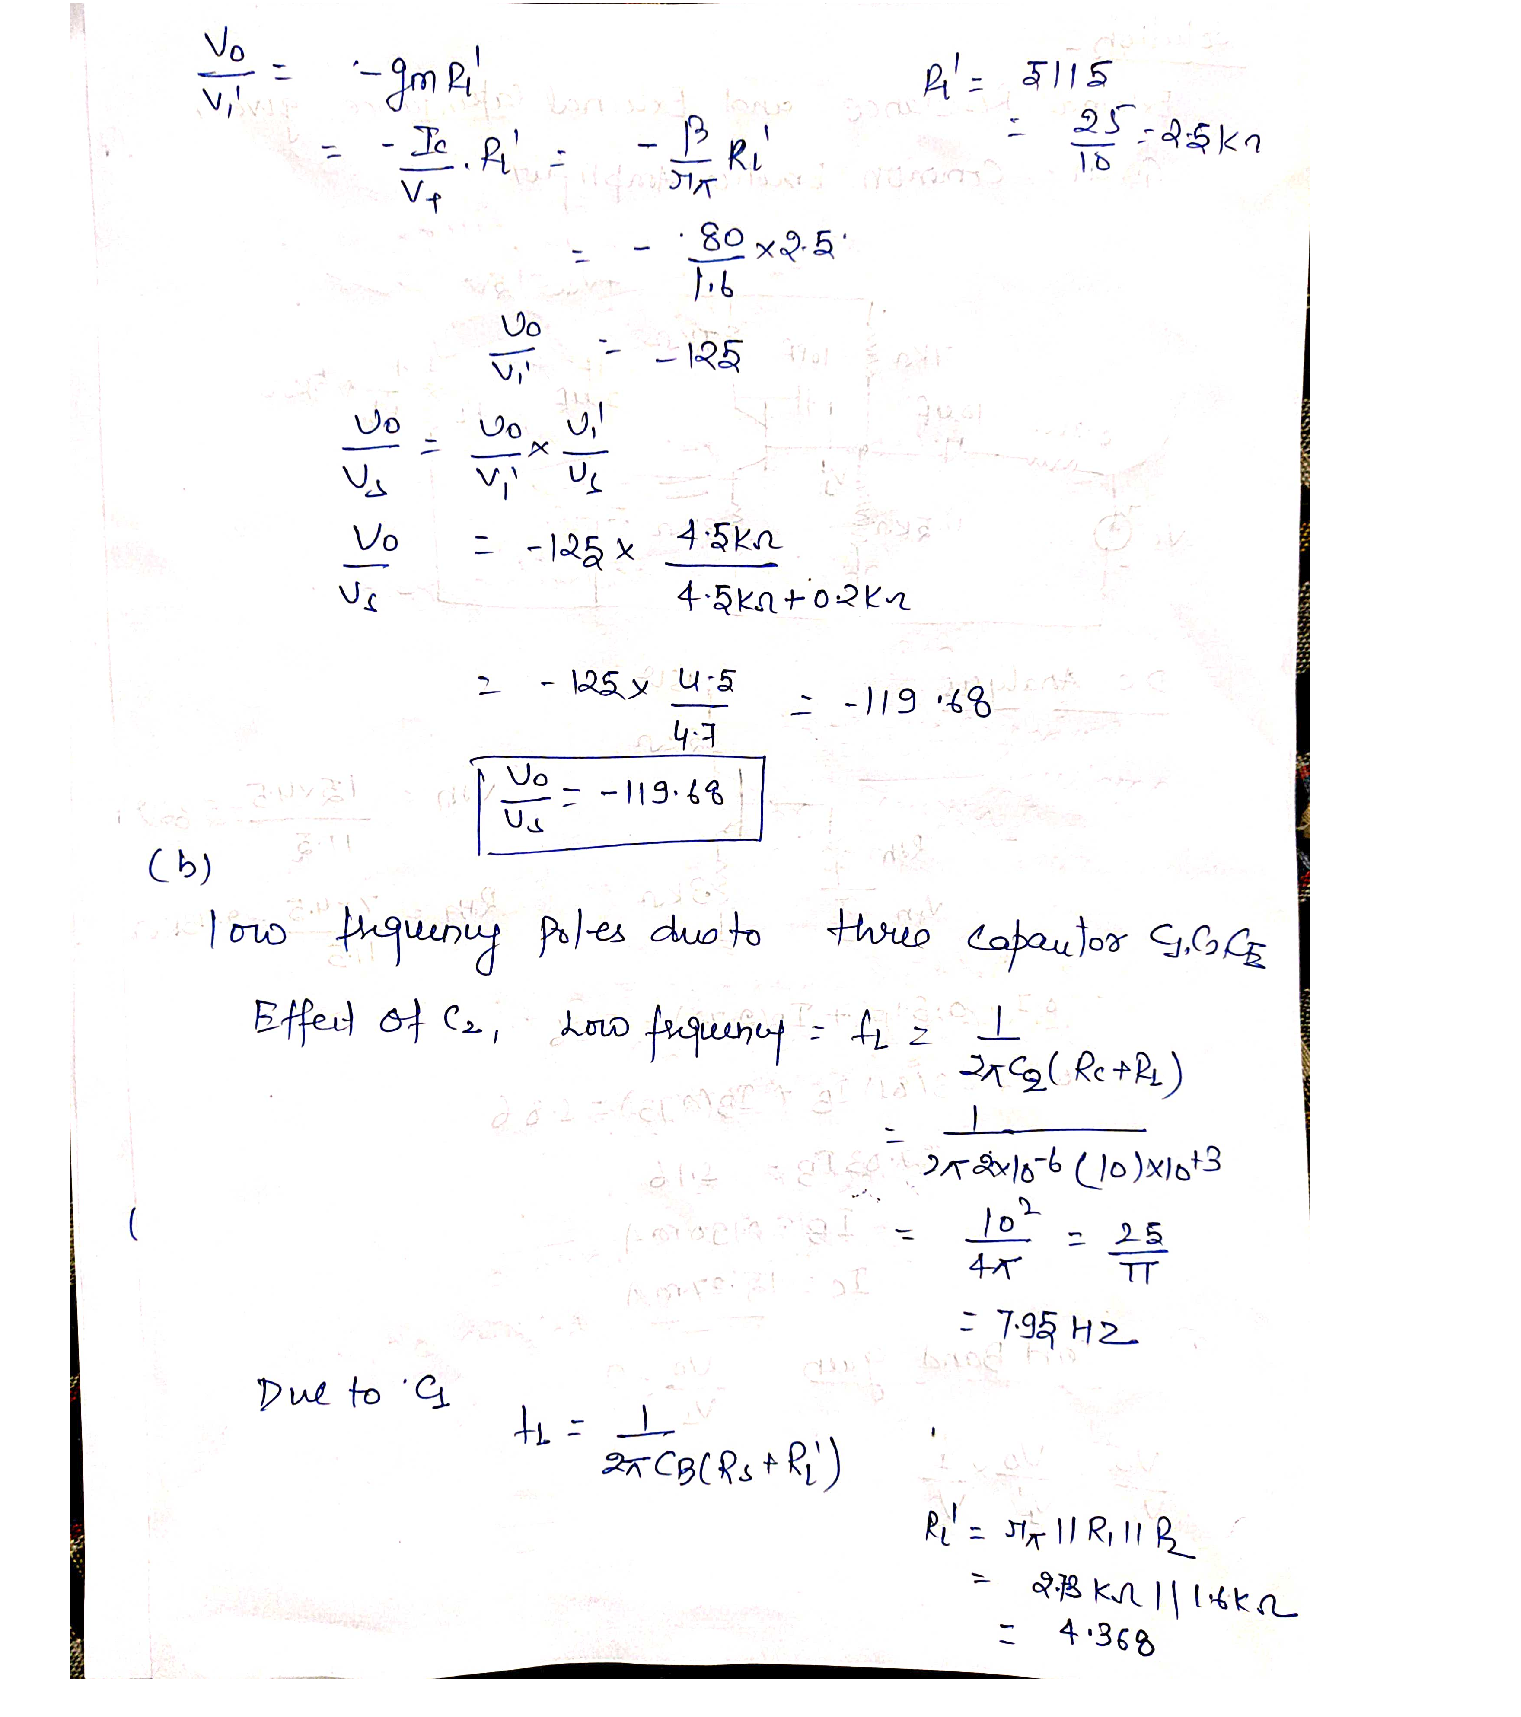 Vo/Vi' = -gm RL'
RL' = 5||5
= 25/10 = 2.5 KΩ
= - Ic/VT . RL' = - β/rπ RL'
= - 80/1.6 × 2.5
Vo/Vi' = -125
Vo/Vs = Vo/Vi' × Vi'/Vs
Vo/Vs = -125 × 4.5KΩ / 4.5KΩ + 0.2KΩ
= -125 × 4.5/4.7 = -119.68
Vo/Vs = -119.68
(b)
low frequency poles due to three capacitor C1, C2, CE
Effect of C2, Low frequency = fL = 1 / 2π C2 (RC + RL)
= 1 / 2π 2×10^-6 (10)×10^+3
= 10^2/4π = 25/π
= 7.95 HZ
Due to C1
fL = 1 / 2π CB (Rs + Ri')
Ri' = rπ || R1 || R2
= 2.73 KΩ || 1.6KΩ
= 4.368